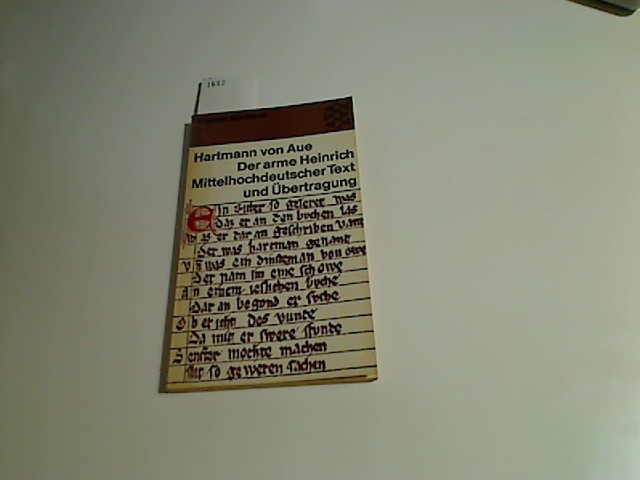 Hartmann von Aue
Der arme Heinrich
Mittelhochdeutscher Text
und Übertragung
Ein ritter so geleret was
Daz er an den buchen las
was er dar an geschriben vant
Der was hartman genant
was ein dinsteman von owe
Der nam im eine schowe
An einem buche
Dar an begond er suche
Ob er icht des vunde
Da mit er swere stunde
Senfter mochte machen
so geweren sachen